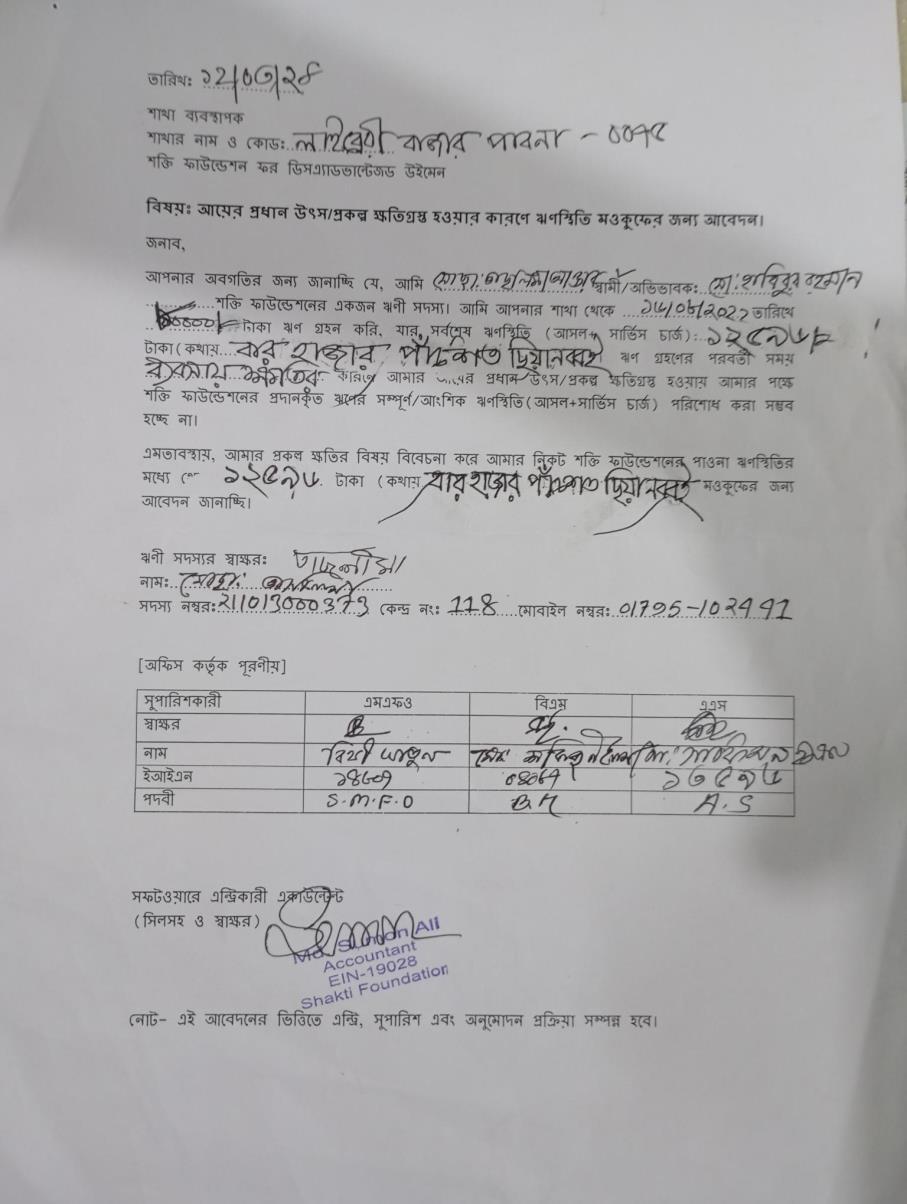 তারিখ: ১২/০৩/২৪
শাখা ব্যবস্থাপক
শাখার নাম ও কোড: লাইব্রেরী বাজার পাবনা - ০০৭৫
শক্তি ফাউন্ডেশন ফর ডিসএ্যাডভান্টেজড উইমেন
বিষয়: আয়ের প্রধান উৎস/প্রকল্প ক্ষতিগ্রস্থ হওয়ার কারণে ঋণস্থিতি মওকুফের জন্য আবেদন।
জনাব,
আপনার অবগতির জন্য জানাচ্ছি যে, আমি মোছা: স্বামী/অভিভাবক: মো: হাবিবুর রহমান
শক্তি ফাউন্ডেশনের একজন ঋনী সদস্য। আমি আপনার শাখা থেকে তারিখে
টাকা ঋণ গ্রহন করি, যার সর্বশেষ ঋণস্থিতি (আসল+ সার্ভিস চার্জ):
টাকা (কথায় বার হাজার পাঁচশত ছিয়ানব্বই ঋণ গ্রহণের পরবর্তী সময়
কারণে আমার আয়ের প্রধান উৎস/প্রকল্প ক্ষতিগ্রস্থ হওয়ায় আমার পক্ষে
শক্তি ফাউন্ডেশনের প্রদানকৃত ঋণের সম্পূর্ণ/আংশিক ঋণস্থিতি (আসল+সার্ভিস চার্জ) পরিশোধ করা সম্ভব
হচ্ছে না।
এমতাবস্থায়, আমার প্রকল্প ক্ষতির বিষয় বিবেচনা করে আমার নিকট শক্তি ফাউন্ডেশনের পাওনা ঋণস্থিতির
মধ্যে ১২৫৯৬ টাকা (কথায় বার হাজার পাঁচশত ছিয়ানব্বই মওকুফের জন্য
আবেদন জানাচ্ছি।
ঋনী সদস্যের স্বাক্ষর:
নাম: মোছা:
সদস্য নম্বর: 211013000373 কেন্দ্র নং: 118 মোবাইল নম্বর: 01795-102491
[অফিস কর্তৃক পূরনীয়]
সুপারিশকারী এমএফও বিএম এএস
স্বাক্ষর
নাম
ইআইএন ১৬৫৯৬
পদবী S.M.F.O B.M A.S
সফটওয়ারে এন্ট্রিকারী একাউন্টেন্ট
(সিলসহ ও স্বাক্ষর)
Ali
Accountant
EIN-19028
Shakti Foundation
নোট- এই আবেদনের ভিত্তিতে এন্ট্রি, সুপারিশ এবং অনুমোদন প্রক্রিয়া সম্পন্ন হবে।